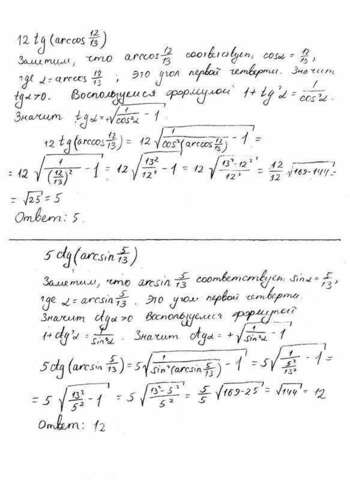 12 tg(arccos 12/13)
Заметим, что arccos 12/13 соответствует cosα = 12/13,
где α = arccos 12/13, это угол первой четверти. Значит
tgα>0. Воспользуемся формулой 1 + tg²α = 1/cos²α.
Значит tgα = +√(1/cos²α − 1).
12 tg(arccos 12/13) = 12 √(1/cos²(arccos 12/13) − 1) =
= 12 √(1/(12/13)² − 1) = 12 √(13²/12² − 1) = 12 √((13²−12²)/12²) = 12/12 √(169−144) =
= √25 = 5
Ответ: 5.
5 ctg(arcsin 5/13)
Заметим, что arcsin 5/13 соответствует sinα = 5/13,
где α = arcsin 5/13. Это угол первой четверти.
Значит ctgα>0 Воспользуемся формулой
1 + ctg²α = 1/sin²α. Значит ctgα = +√(1/sin²α − 1)
5 ctg(arcsin 5/13) = 5 √(1/sin²(arcsin 5/13) − 1) = 5 √(1/(5²/13²) − 1) =
= 5 √(13²/5² − 1) = 5 √((13²−5²)/5²) = 5/5 √(169−25) = √144 = 12
Ответ: 12